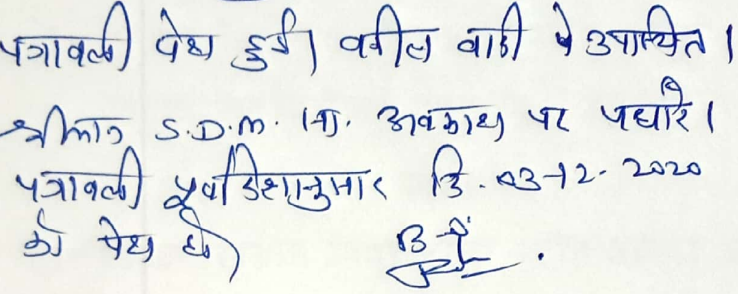 पत्रावली पेश हुई। वकील वादी ने उपस्थित।
श्रीमान S.D.M. सा. अवकाश पर पधारे।
पत्रावली पूर्वादेशानुसार दि. 03-12-2020
को पेश हो